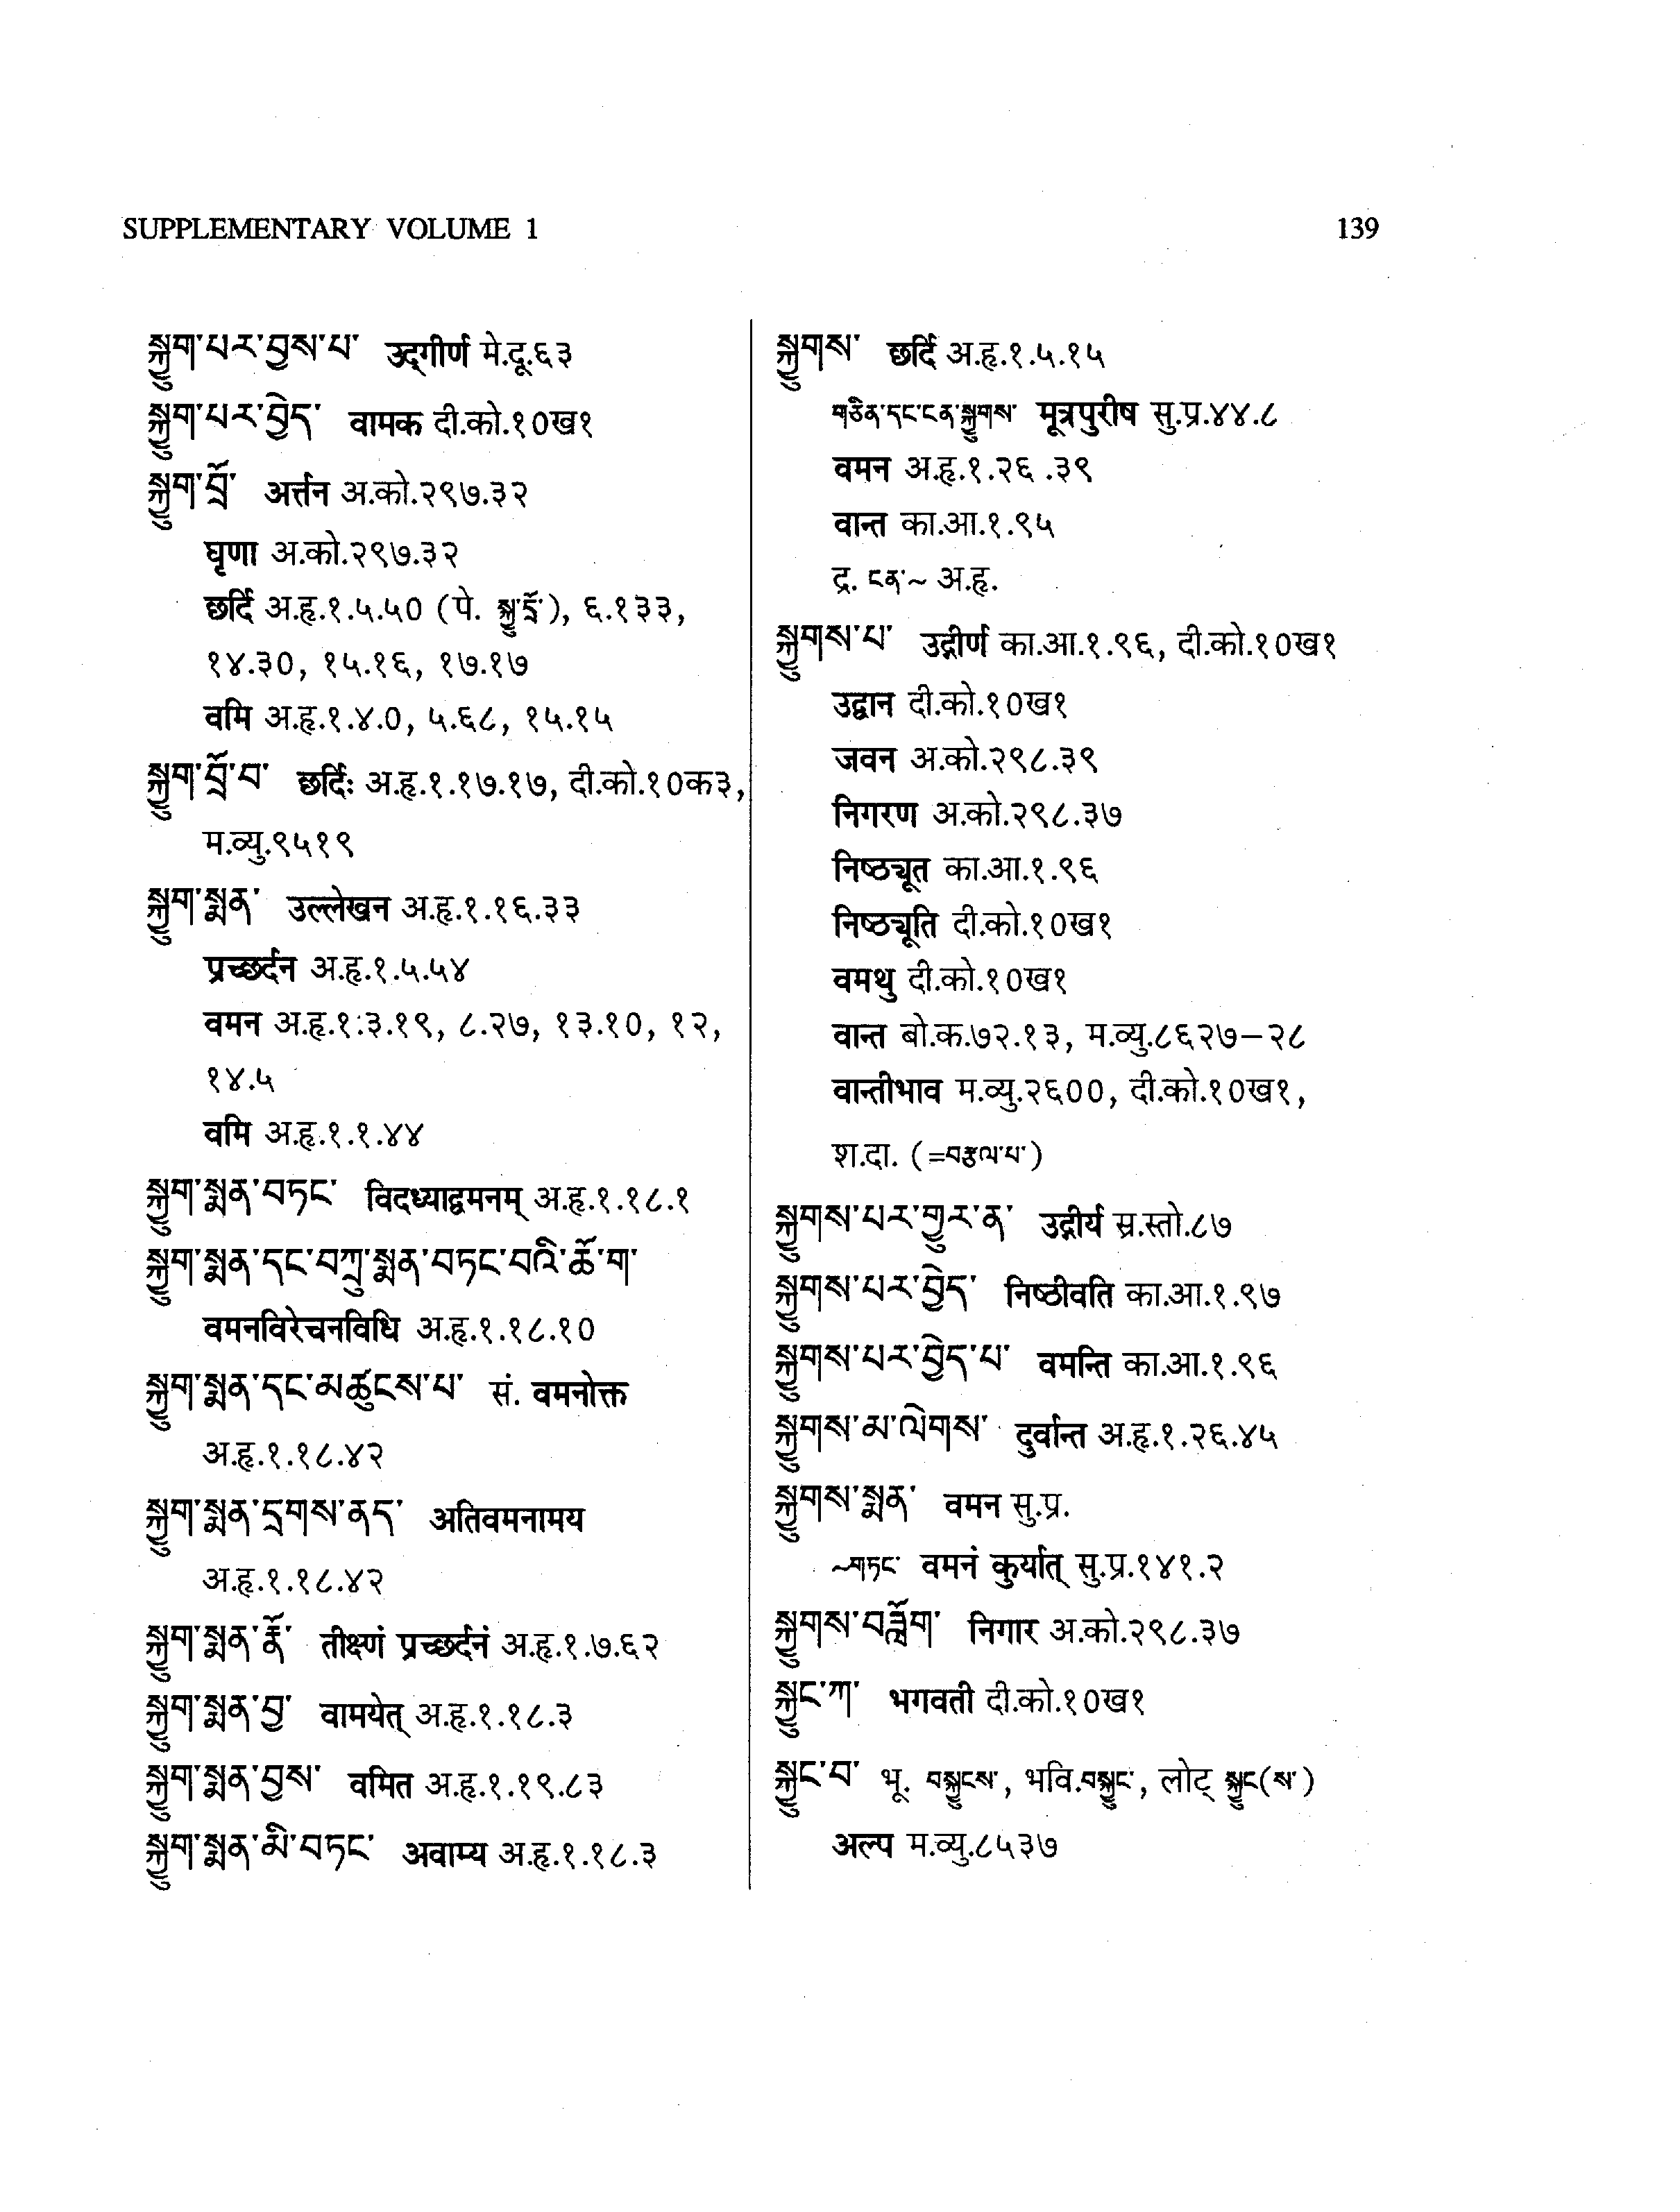 SUPPLEMENTARY VOLUME 1 139
སྐྱུག་པར་བྱས་པ་ उद्‌गीर्ण मे.दू.६३
སྐྱུག་པར་བྱེད་ वामक दी.को.१०ख१
སྐྱུག་བྲོ་ अर्त्तन अ.को.२९७.३२
घृणा अ.को.२९७.३२
छर्दि अ.हृ.१.५.५० (पे. སྐྱུ་དྲོ་), ६.१३३,
१४.३०, १५.१६, १७.१७
वमि अ.हृ.१.४.०, ५.६८, १५.१५
སྐྱུག་བྲོ་བ་ छर्दिः अ.हृ.१.१७.१७, दी.को.१०क३,
म.व्यु.९५१९
སྐྱུག་སྨན་ उल्लेखन अ.हृ.१.१६.३३
प्रच्छर्दन अ.हृ.१.५.५४
वमन अ.हृ.१.३.१९, ८.२७, १३.१०, १२,
१४.५
वमि अ.हृ.१.१.४४
སྐྱུག་སྨན་བཏང་ विदध्याद्वमनम् अ.हृ.१.१८.१
སྐྱུག་སྨན་དང་བཀྲུ་སྨན་བཏང་བའི་ཆོ་ག་
वमनविरेचनविधि अ.हृ.१.१८.१०
སྐྱུག་སྨན་དང་མཚུངས་པ་ सं. वमनोक्त
अ.हृ.१.१८.४२
སྐྱུག་སྨན་དྲགས་ནད་ अतिवमनामय
अ.हृ.१.१८.४२
སྐྱུག་སྨན་རྣོ་ तीक्ष्णं प्रच्छर्दनं अ.हृ.१.७.६२
སྐྱུག་སྨན་བྱ་ वामयेत् अ.हृ.१.१८.३
སྐྱུག་སྨན་བྱས་ वमित अ.हृ.१.१९.८३
སྐྱུག་སྨན་མི་བཏང་ अवाम्य अ.हृ.१.१८.३
སྐྱུགས་ छर्दि अ.हृ.१.५.१५
གཅིན་དང་ངན་སྐྱུགས་ मूत्रपुरीष सु.प्र.४४.८
वमन अ.हृ.१.२६.३९
वान्त का.आ.१.९५
द्र. ངན་~ अ.हृ.
སྐྱུགས་པ་ उद्गीर्ण का.आ.१.९६, दी.को.१०ख१
उद्वान दी.को.१०ख१
जवन अ.को.२९८.३९
निगरण अ.को.२९८.३७
निष्ठ्यूत का.आ.१.९६
निष्ठ्यूति दी.को.१०ख१
वमथु दी.को.१०ख१
वान्त बो.क.७२.१३, म.व्यु.८६२७–२८
वान्तीभाव म.व्यु.२६००, दी.को.१०ख१,
श.दा. (=བརྩལ་པ་)
སྐྱུགས་པར་གྱུར་ན་ उद्गीर्य स्र.स्तो.८७
སྐྱུགས་པར་བྱེད་ निष्ठीवति का.आ.१.९७
སྐྱུགས་པར་བྱེད་པ་ वमन्ति का.आ.१.९६
སྐྱུགས་མ་ལེགས་ दुर्वान्त अ.हृ.१.२६.४५
སྐྱུགས་སྨན་ वमन सु.प्र.
~གཏང་ वमनं कुर्यात् सु.प्र.१४१.२
སྐྱུགས་བཟློག་ निगार अ.को.२९८.३७
སྐྱུང་ཀ་ भगवती दी.को.१०ख१
སྐྱུང་བ་ भू. བསྐྱུངས་, भवि.བསྐྱུང་, लोट् སྐྱུང(ས་)
अल्प म.व्यु.८५३७